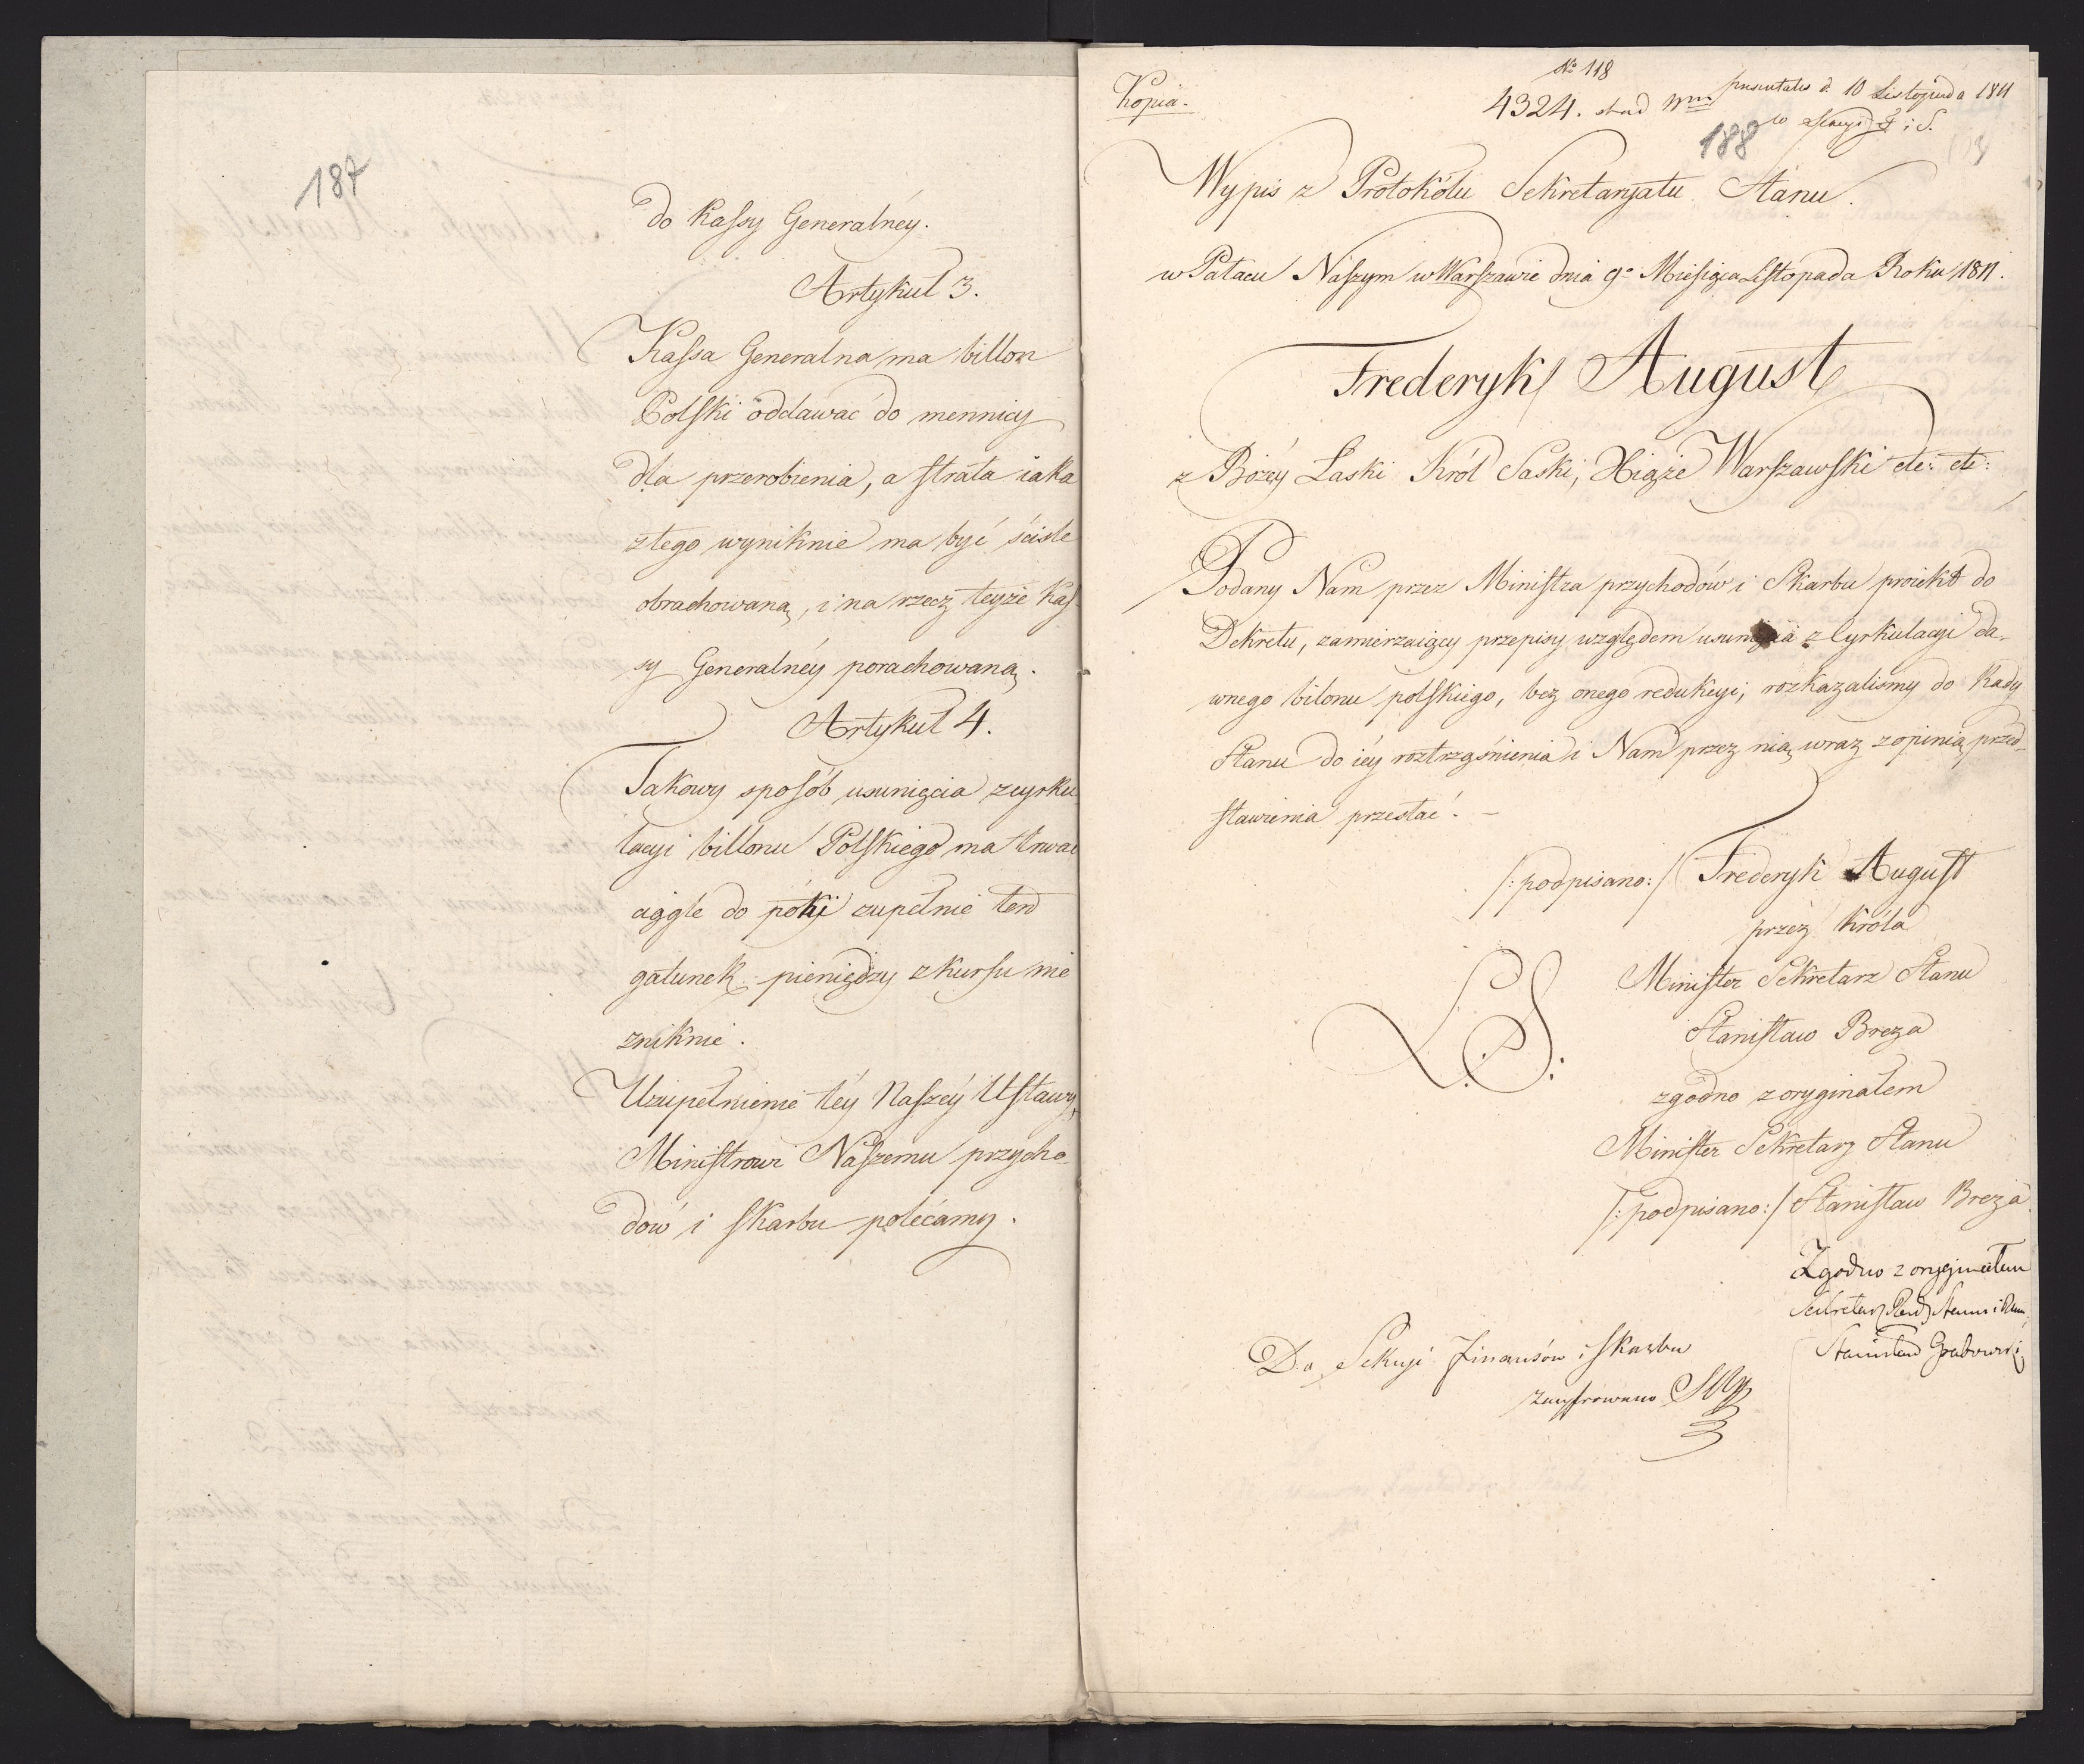 187
do Kassy Generalnéy.
Artykuł 3.
Kassa Generalna ma billon
Polski oddawać do mennicy
dla przerobienia, a strata iaka
z tego wyniknie ma być ściśle
obrachowaną, i na rzecz teyże Kas-
sy Generalnéy porachowaną.
Artykuł 4.
Takowy sposób usunięcia z cyrku
lacyi billonu Polskiego ma trwać
ciągle do póki zupełnie ten
gatunek pieniędzy z kursu nie
zniknie.
Uzupełnienie téy Naszéy Ustawy,
Ministrowi Naszemu przycho-
dów i skarbu polecamy.
Kopia.
No 118
4324. presentatis d. 10 Listopada 1811
w i S.
188
Wypis z Protokółu Sekretaryatu Stanu.
w Pałacu Naszym w Warszawie dnia 9o Miesiąca Listopada Roku 1811.
Frederyk August
z Bożéy Łaski Król Saski, Xiąże Warszawski etc: etc:
Podany Nam przez Ministra przychodów i Skarbu proiekt do
Dekretu, zamierzaiący przepisy względem usunięcia z Cyrkulacyi da-
wnego bilonu polskiego, bez onego redukcyi, rozkazalismy do Rady
Stanu do iéy roztrząśnienia i Nam przez nią wraz z opinią przed-
stawienia przesłać. –
/: podpisano: / Frederyk August
przez Króla
Minister Sekretarz Stanu
Stanisław Breza
L. S.
zgodno z oryginałem
Minister Sekretarz Stanu
/: podpisano: / Stanisław Breza
Zgodno z oryginałem
Sekretarz Rady Stanu i
Stanisław Grabowski
Do Sekcyi Finansów i Skarbu